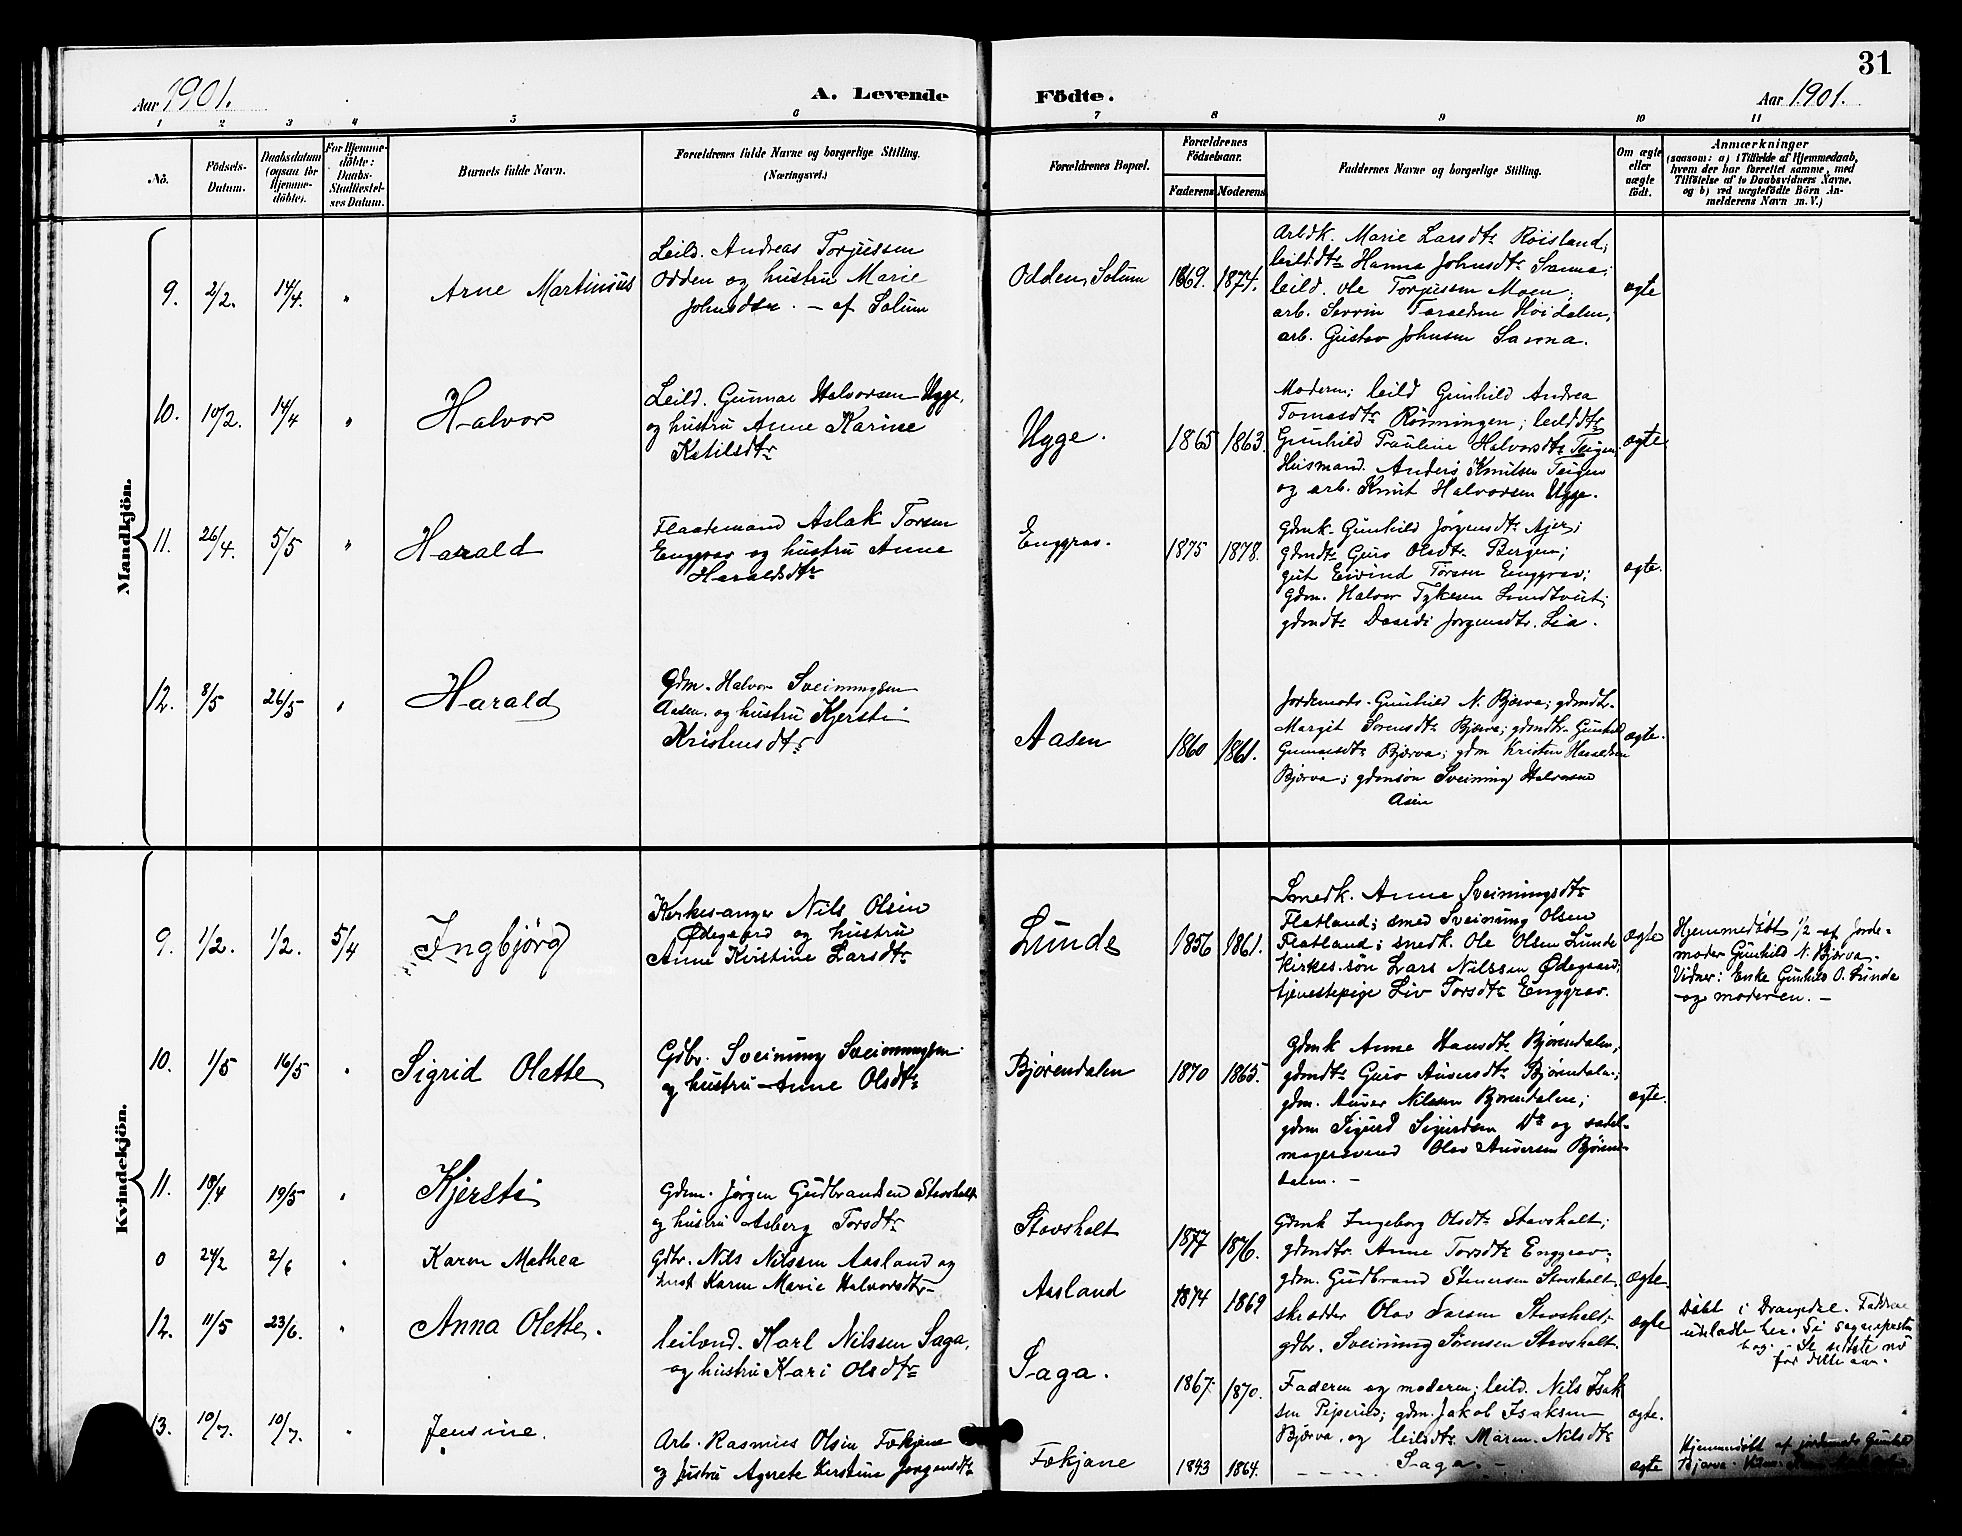 31
Aar 1901.
A. Levende
Födte.
Aar 1901.
1 2 3 4 5 6 7 8 9 10 11
No.
Födsels-
Datum.
Daabsdatum
(ogsaa for
Hjemme-
döbte).
For Hjemme-
döbte:
Daabs-
Stadfæstel-
ses Datum.
Barnets fulde Navn.
Forældrenes fulde Navne og borgerlige Stilling.
(Næringsvei.)
Forældrenes Bopæl.
Forældrenes
Födselsaar.
Faderens Moderens
Faddernes Navne og borgerlige Stilling.
Om ægte
eller
uægte
födt.
Anmærkninger
(saasom: a) i Tilfælde af Hjemmedaab,
hvem der har forrettet samme, med
Tilföielse af to Daabsvidners Navne.
og b) ved uægtefödte Börn An-
melderens Navn m. V.)
Mandkjön.
9. 2/2. 14/4. " Arne Martinius
Leild. Andreas Torjussen
Odden og hustru Marie
Johnsdtr. - af Solum
Odden, Solum 1869. 1874.
Arbdk. Marie Larsdtr Röisland;
leild.dtr Hanna Johnsdtr Sanna;
leild. Ole Torjussen Moen;
arb. Servin Taraldsen Höidalen;
arb. Gustav Johnsen Sanna.
ægte
10. 10/2. 14/4 " Halvor
Leild. Gunnar Halvorsen Ugge,
og hustru Anne Karine
Ketilsdtr
Ugge. 1865 1863.
Moderen; leild Gunhild Andrea
Tomasdtr Rönningen; leilddtr
Gunhild Pauline Halvorsdtr Teigen;
Husmand. Anders Knutsen Teigen
og arb. Knut Halvorsen Ugge.
ægte
11. 26/4. 5/5 " Harald
Flaademand Aslak Torsen
Enggrav og hustru Anne
Haraldsdtr
Enggrav. 1875 1878.
Gdmk. Gunhild Jørgensdtr Ajer;
gdmdtr Guro Olsdtr Bergen;
gut Eivind Torsen Enggrav;
gdm. Halvor Tykesen Lundtveit;
gdmdtr Daardi Jørgensdtr. Lia.
ægte.
12. 8/5 26/5 " Harald
Gdm. Halvor Sveinungsen
Aasen. og hustru Kjersti
Kristensdtr
Aasen 1860 1861.
Jordemods. Gunhild N. Bjerva; gdmdtr.
Margit Sørensdtr Bjerva; gdmdtr. Gunhild
Gunnarsdtr Bjerva; gdm Kristen Haraldsen
Bjerva; gdmsön Sveinung Halvorsen
Asen
ægte.
Kvindekjön.
9. 1/2. 1/2. 5/4 Ingbjörg
Kirkesanger Nils Olsen
Ødegaard og hustru
Anne Kirstine Larsdtr
Lunde 1856 1861.
Smedk. Anne Sveinungsdtr
Flatland; smed Sveinung Olsen
Flatland; snedk. Ole Olsen Lunde
kirkes.sön Lars Nilssen Ødegaard;
tjenestepige Liv Torsdtr Enggrav.
ægte
Hjemmedöbt 1/2 af Jorde-
moder Gunhild N. Bjerva.
Vidner: Enke Gunhild O. Lunde
og moderen. -
10. 1/5 16/5 " Sigrid Olette
Gdbr. Sveinung Sveinungsen
og hustru Anne Olsdtr
Bjørendalen 1870 1865.
Gdmk Anne Hansdtr Bjørendalen;
gdmdtr Guro Auversdtr Bjørndalen;
gdm. Auver Nilssen Bjørendalen;
gdm Sigurd Sigurdsen Ds og sadel-
magersvend Olav Auversen Bjøren-
dalen. -
ægte.
11. 18/4 19/5 " Kjersti
Gdm. Jørgen Gudbrandsen Stavsholt
og hustru Asberg Torsdtr
Stavsholt 1877 1876.
Gdmk Ingeborg Olsdtr Stavsholt;
gdmdtr. Anne Torsdtr Enggrav
gdm. Gudbrand Stenersen Stavsholt
skrædder Olav Larsen Stavsholt;
gdbr. Sveinung Sørensen Stavsholt.
ægte
0 24/2 2/6 " Karen Mathea
Gdbr. Nils Nilssen Aasland og
hust Karen Marie Halvorsdtr
Aasland 1874 1869
ægte
Döbt i Drangedal. Faddrene
udeladte her. Se
for dette aar.
12. 11/5 23/6. " Anna Olette.
Leilænd. Karl Nilssen Saga,
og hustru Kari Olsdtr
Saga. 1867. 1870.
Faderen og moderen; leild. Nils Isak-
sen Piperlid; gdm. Jakob Isaksen
Bjerva, og leildsdtr Maren Nilsdtr
Saga. -
ægte.
13. 10/7. 10/7. " Jensine.
Arb. Rasmus Olsen Fækjane
og hustru Agnete Kerstine Jørgensdtr
Fækjane 1843 1864.
ægte
Hjemmedöbt af jordemods Gunhild
Bjerva.